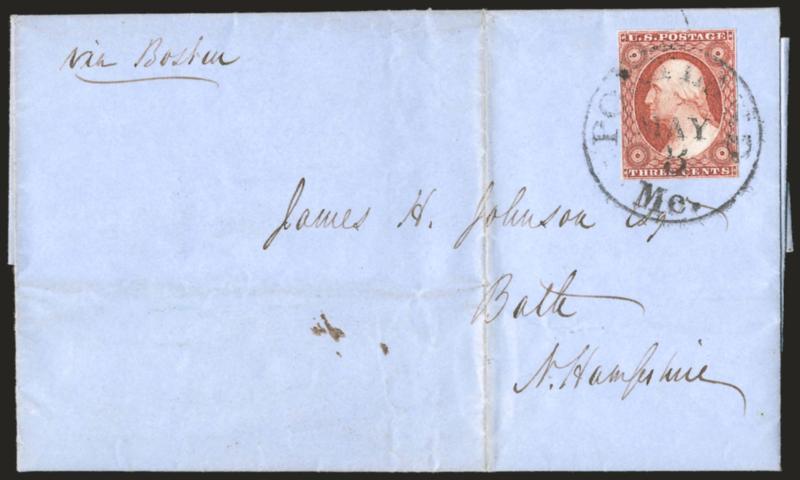 via Boston
U.S. POSTAGE
THREE CENTS
PORTLAND
MAY
5
Me.
James H. Johnson Esq
Bath
N. Hampshire